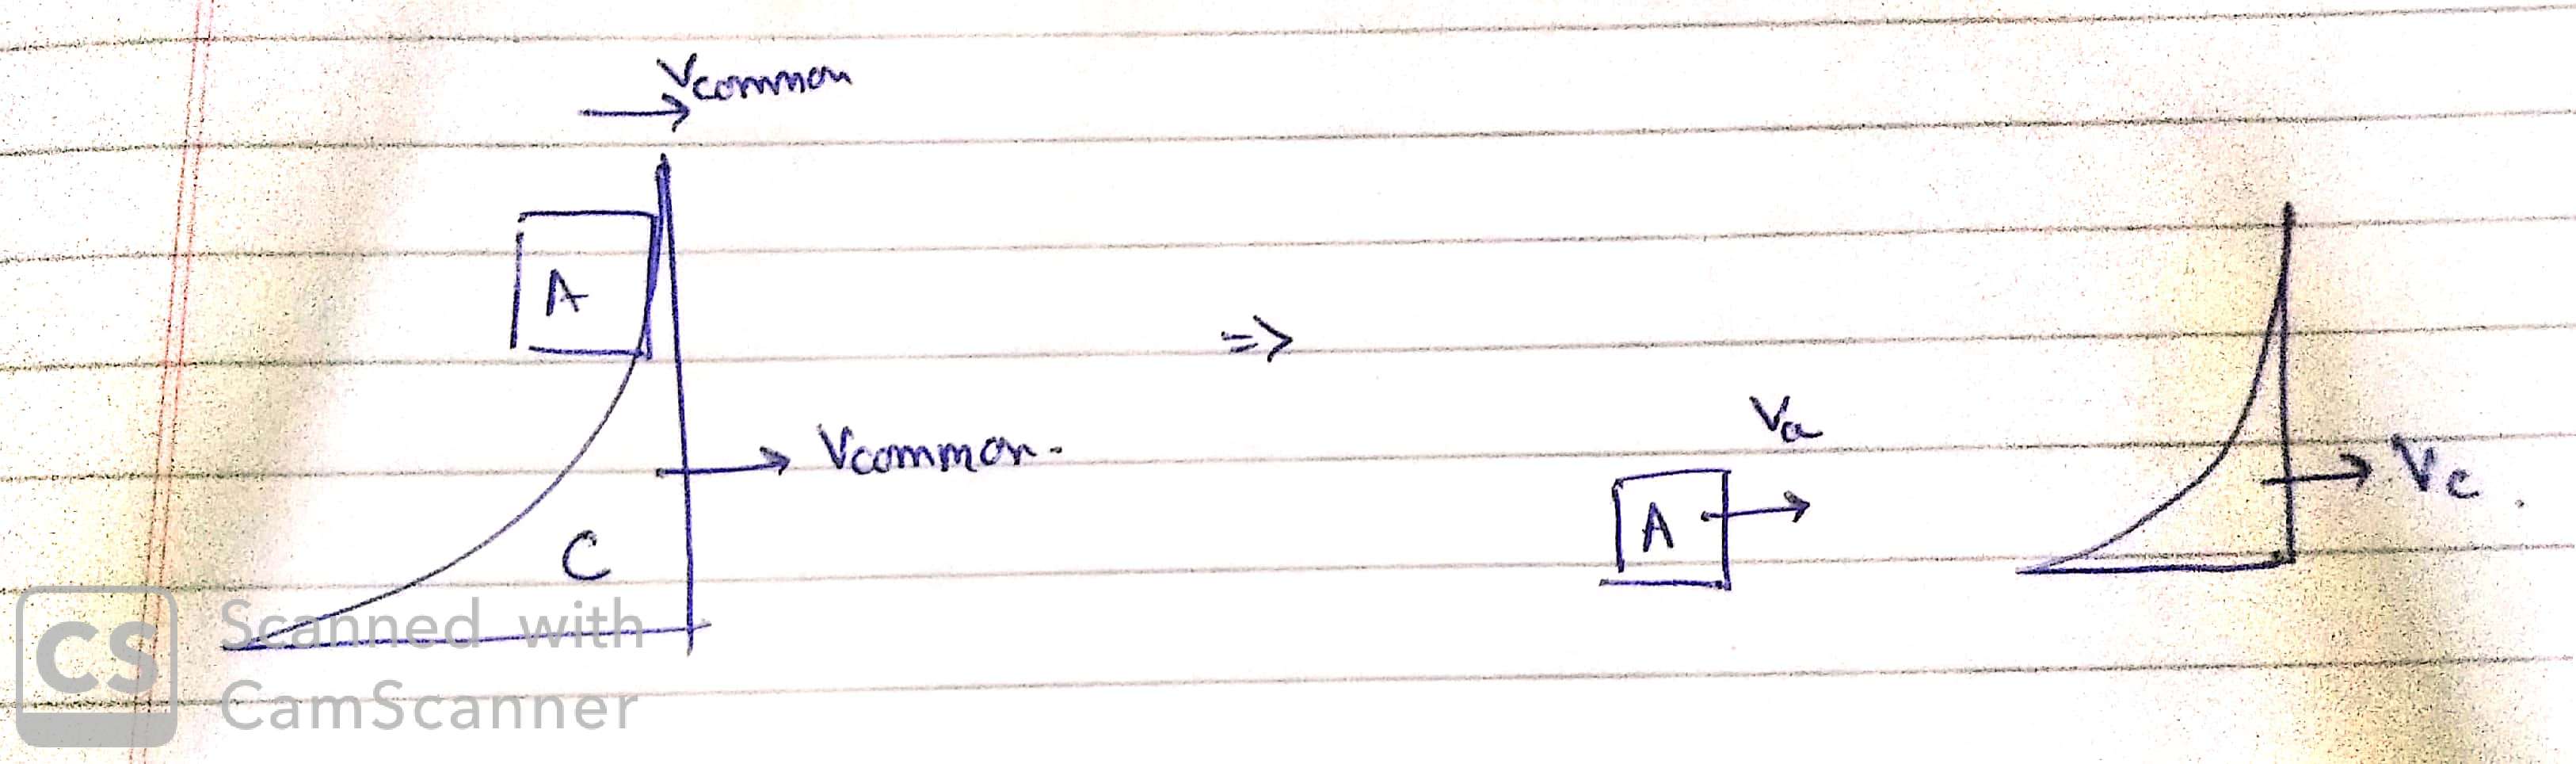 Vcommon
A
Vcommon.
C
=>
Va
A
Vc.
CS Scanned with
CamScanner